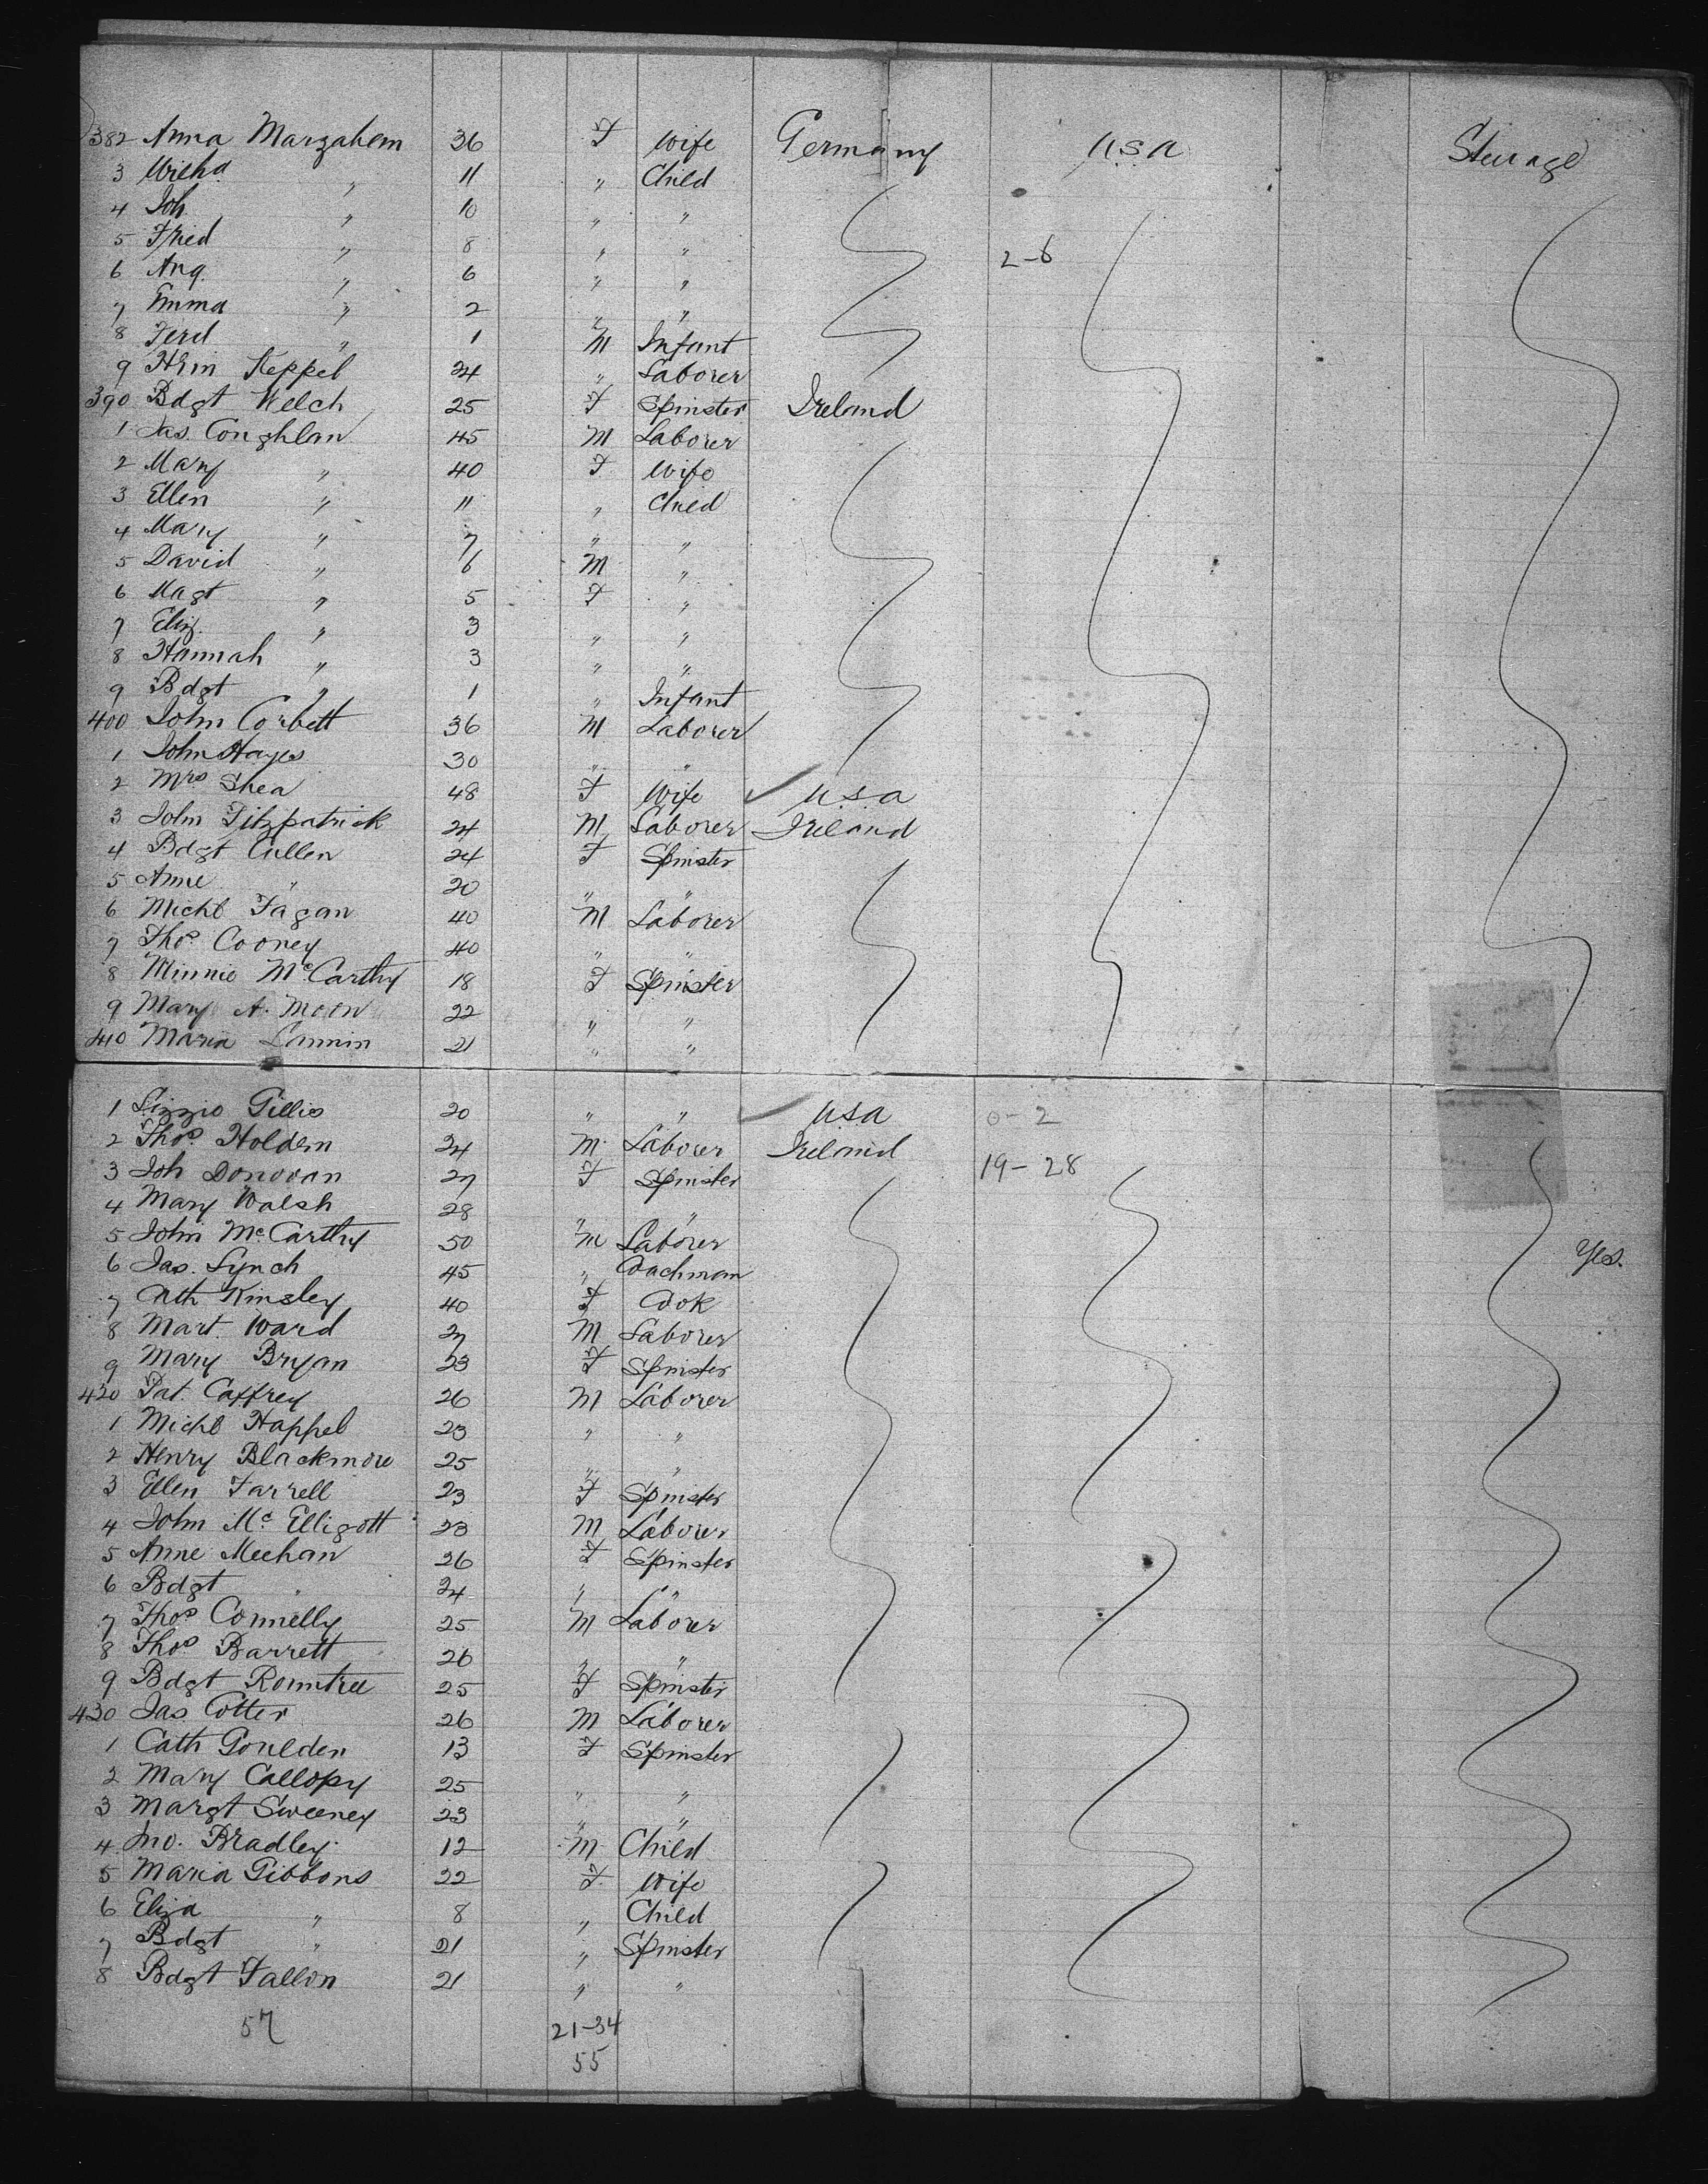 382 Anna Marzahem 36 F Wife Germany USA Steerage
3 Wilhd " 11 " Child
4 Joh. " 10 " "
5 Fried " 8 " "
6 Aug. " 6 " " 2-6
7 Emma " 2 " "
8 Ferd " 1 M Infant
9 Hrin Keppel 24 " Laborer
390 Bdgt Welch 25 F Spinster Ireland
1 Jas. Coughlan 45 M Laborer
2 Mary " 40 F Wife
3 Ellen " 11 " Child
4 Mary " 7 " "
5 David " 6 M "
6 Magt " 5 F "
7 Eliz. " 3 " "
8 Hannah " 3 " "
9 Bdgt " 1 " Infant
400 John Corbett 36 M Laborer
1 John Hayes 30 " "
2 Mrs Shea 48 F Wife ✓ USA
3 John Fitzpatrick 24 M Laborer Ireland
4 Bdgt Cullen 24 F Spinster
5 Anne " 20 " "
6 Michl Fagan 40 M Laborer
7 Thos. Cooney 40 " "
8 Minnie McCarthy 18 F Spinster
9 Mary A. Moon 22 " "
410 Maria Cannin 21 " "
1 Lizzie Gillis 20 " " ✓ USA 0-2
2 Thos. Holdem 24 M. Laborer Ireland
3 Joh Donovan 27 F Spinster 19-28
4 Mary Walsh 28 " "
5 John McCarthy 50 M Laborer
6 Jas. Lynch 45 " Coachman Yes.
7 Cth Kinsley 40 F Cook
8 Mart. Ward 27 M Laborer
9 Mary Bryan 23 F Spinster
420 Pat Caffrey 26 M Laborer
1 Michl Happel 23 " "
2 Henry Blackmore 25 " "
3 Ellen Farrell 23 F Spinster
4 John McElligott 23 M Laborer
5 Anne Meehan 26 F Spinster
6 Bdgt " 24 " "
7 Thos Connelly 25 M Laborer
8 Thos Barrett 26 " "
9 Bdgt Rountree 25 F Spinster
430 Jas Cotter 26 M Laborer
1 Cath Goulden 13 F Spinster
2 Mary Callopy 25 " "
3 Margt Sweeney 23 " "
4 Jno. Bradley 12 M Child
5 Maria Gibbons 22 F Wife
6 Eliza " 8 " Child
7 Bdgt " 21 " Spinster
8 Bdgt Fallon 21 " "
57 21-34
55